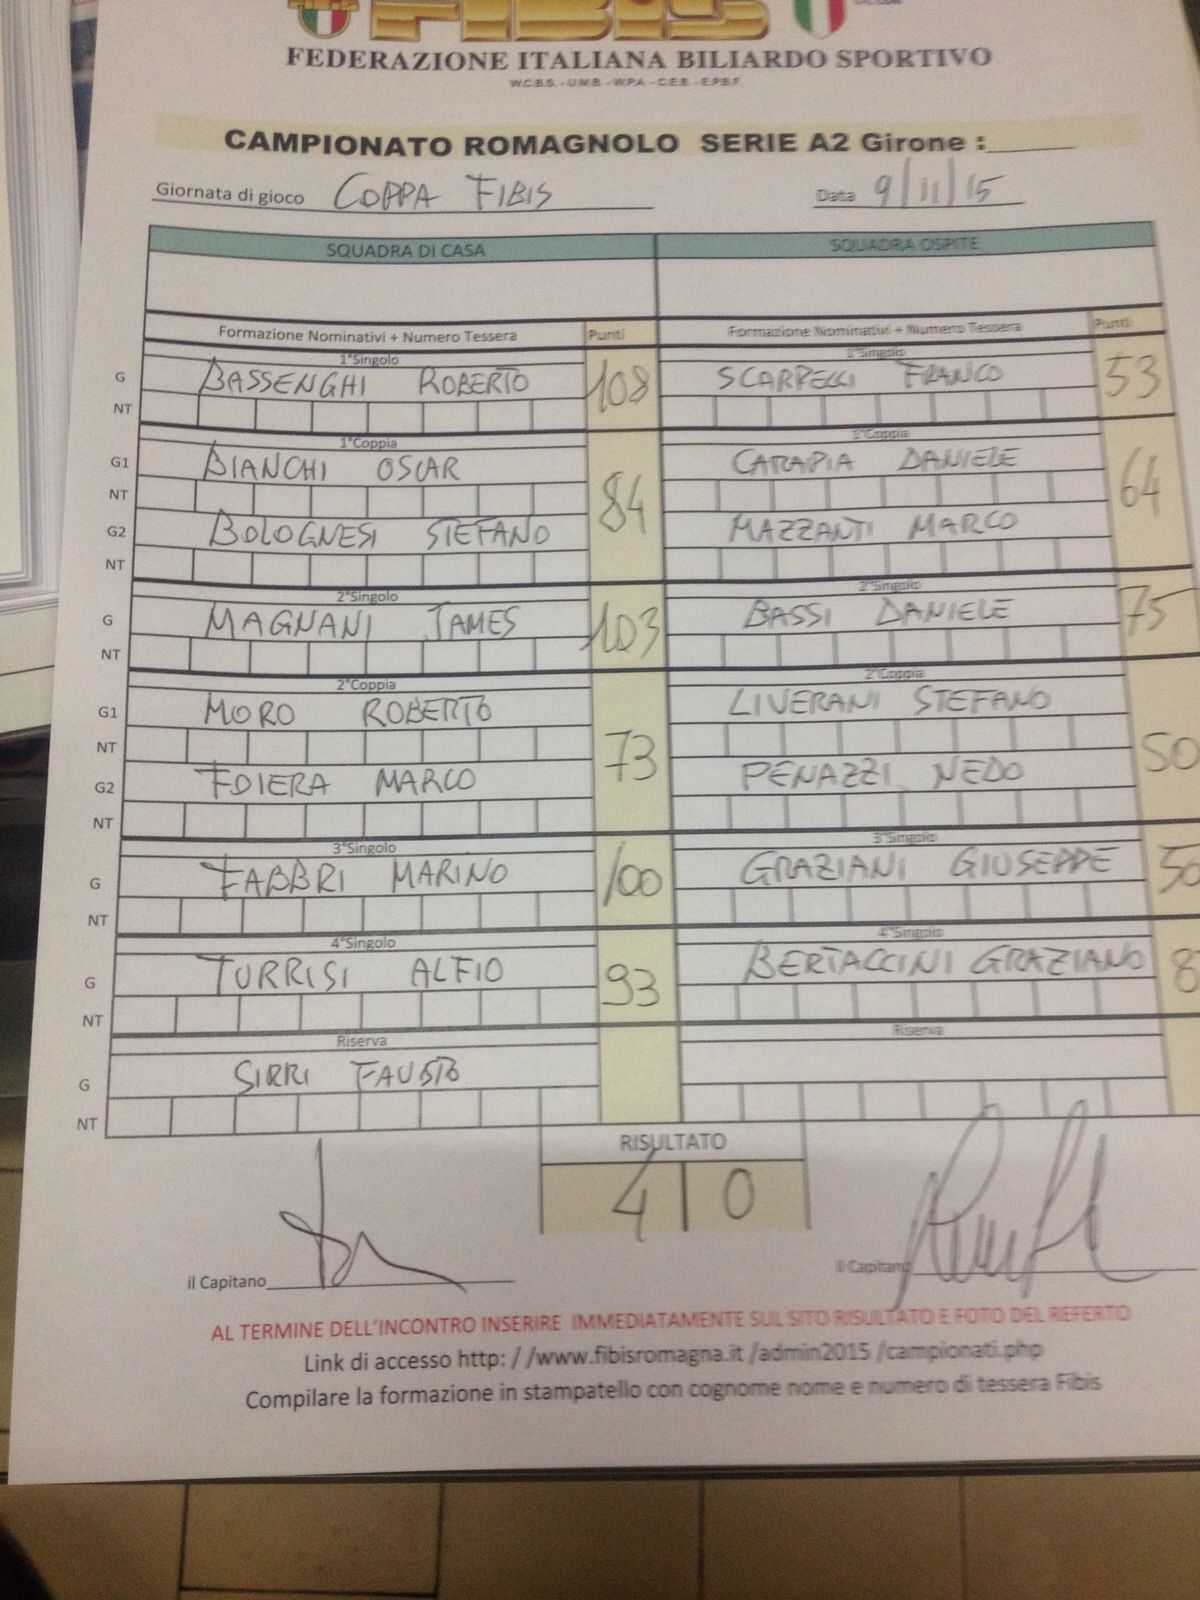 FIBIS
FEDERAZIONE ITALIANA BILIARDO SPORTIVO
W.C.B.S. - U.M.B. - W.P.A. - C.E.B. - E.P.B.F.
CAMPIONATO ROMAGNOLO SERIE A2 Girone :
Giornata di gioco COPPA FIBIS Data 9/11/15
SQUADRA DI CASA SQUADRA OSPITE
Formazione Nominativi + Numero Tessera Punti Formazione Nominativi + Numero Tessera Punti
1°Singolo 1°Singolo
G BASSENGHI ROBERTO 108 SCARPELLI FRANCO 53
NT
1°Coppia 1°Coppia
G1 BIANCHI OSCAR CARAPIA DANIELE
NT 84 64
G2 BOLOGNESI STEFANO MAZZANTI MARCO
NT
2°Singolo 2°Singolo
G MAGNANI JAMES 103 BASSI DANIELE 75
NT
2°Coppia 2°Coppia
G1 MORO ROBERTO LIVERANI STEFANO
NT 73 50
G2 FOIERA MARCO PENAZZI NEDO
NT
3°Singolo 3°Singolo
G FABBRI MARINO 100 GRAZIANI GIUSEPPE 50
NT
4°Singolo 4°Singolo
G TURRISI ALFIO 93 BERTACCINI GRAZIANO 8
NT
Riserva Riserva
G SIRRI FAUSTO
NT
RISULTATO
4 0
il Capitano il Capitano
AL TERMINE DELL'INCONTRO INSERIRE IMMEDIATAMENTE SUL SITO RISULTATO E FOTO DEL REFERTO
Link di accesso http: / /www.fibisromagna.it /admin2015 /campionati.php
Compilare la formazione in stampatello con cognome nome e numero di tessera Fibis